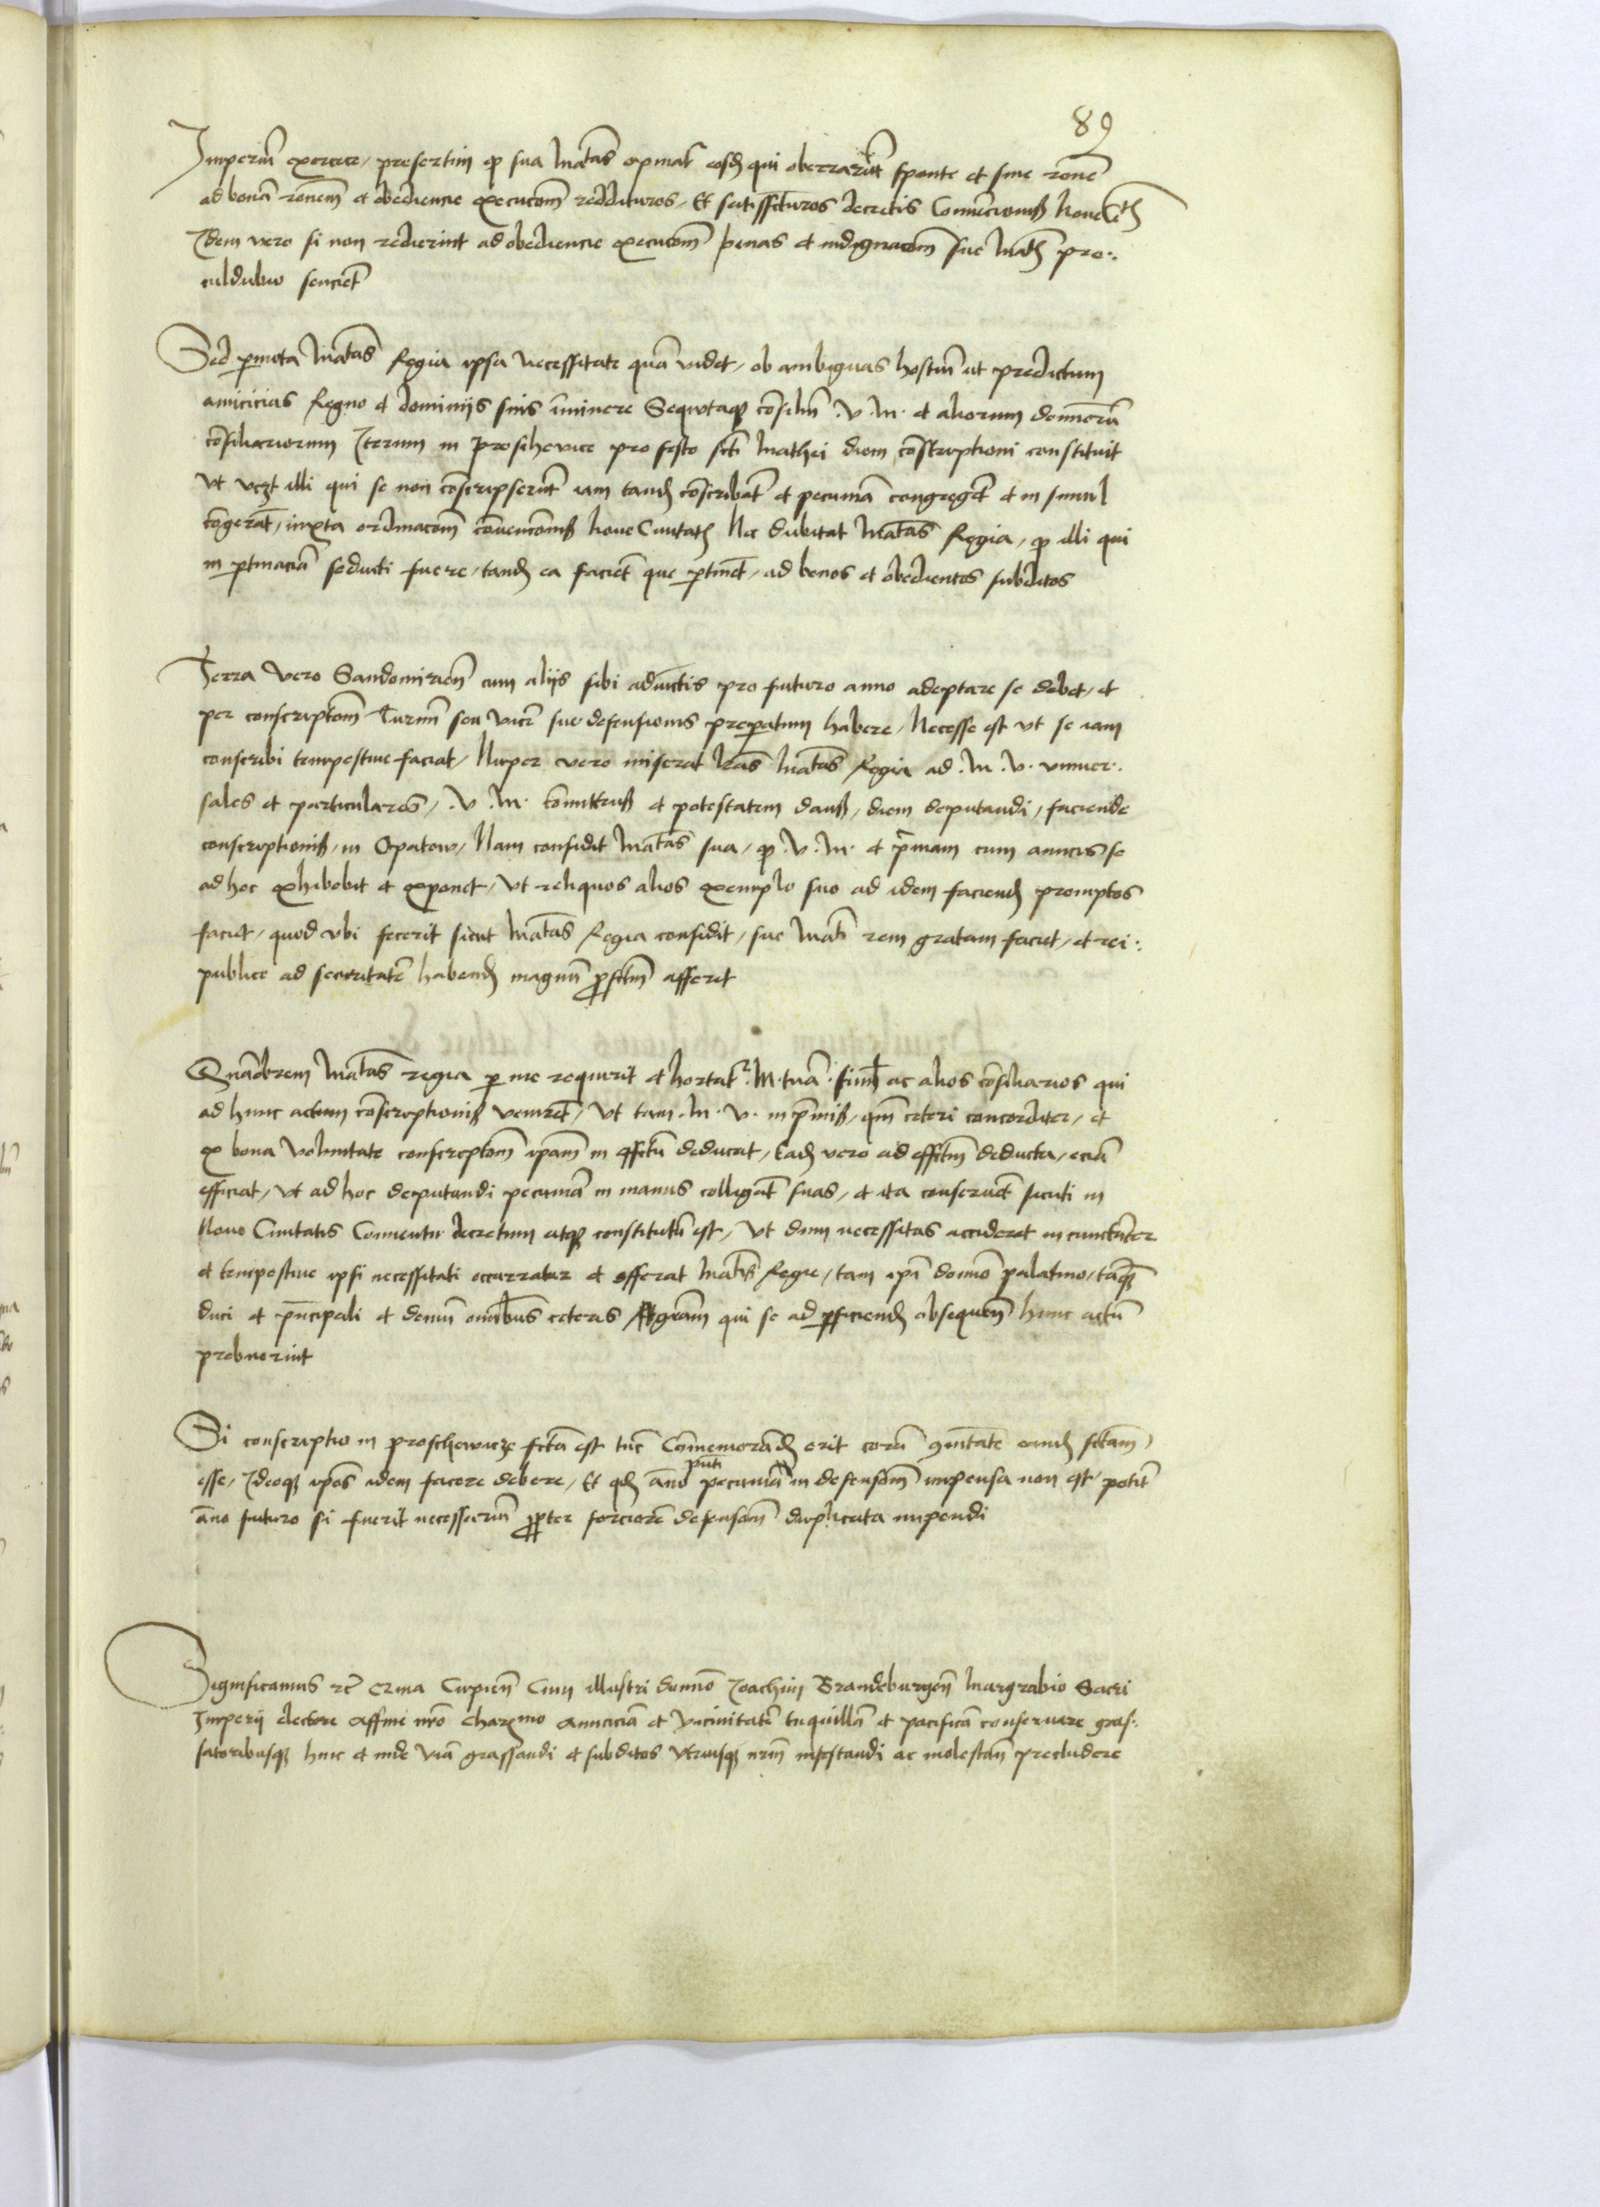 89
Imperiũ exercere, presertim ꝙ sua Mat̃as opinat᷑ eosdꝫ qui oberrarũt sponte et sine rõne
ad bonã rõnem̃ et obediencie execucom̃ reddituros, Et satisfcturos decretis Convencionis Nove
Idem vero si non redierint ad obediencie execucom̃ penas et indignacom̃ sue Mat̃ꝫ pro
culdubio sencient̃
Sed permota Mat̃as Regia ipsa necessitate quã videt, ob ambiguas hostiũ ut predictum
amicicias Regno et dominiis suis ĩminere Secutaqꝫ cõsiliũ .V.M. et aliorum dominorũ
cõsiliariorum Iterum in Proschevice pro festo scti Mathei diem cõscriptioni constituit
Ut vꝫt illi qui se non cõscripserũt iam tandꝫ cõscribãt et pecuniã congregẽt et in simul
cõgerãt, iuxta ordinacom̃ cõvencõnis Nove Civitatꝫ Nec dubitat Mat̃as Regia, ꝙ illi qui
in ꝑtinaciã seducti fuere, tandꝫ ea faciẽt que ꝑtinẽt, ad bonos et obedientes subditos
Terra vero Sandomirieñ cum aliis sibi adiũctis pro futuro anno adeptare se debet, et
per conscriptom̃ Turnũ seu vicẽ sue defensionis preparatum habere, Necesse est ut se iam
conscribi tempestive faciat, Nuper vero miserat lr̃as Mat̃as Regia ad .M.V. univer
sales et particulares, .V.M. cõmittens et potestatem dans, diem deputandi, faciende
conscriptionis, in Opatow, Nam confidit Mat̃as sua, ꝙ .V.M. et p̃mam cum amicis se
ad hoc exhibebit et exponet, Ut reliquos alios exemplo suo ad idem faciendꝫ promptos
faciet, quod ubi fecerit sicut Mat̃as Regia confidit, sue Mat̃i rem gratam faciet, et rei
publice ad securitatẽ habendꝫ magnũ ꝓfctũ afferet
Quãobrem Mat̃as regia per me requirit et hortat᷑ .M. tuã. simul ac alios cõsiliarios qui
ad hunc actum cõscriptionis veniret̃, Ut tam .M.V. in p̃mis, quam ceteri concorditer, et
ex bona voluntate conscriptom̃ ip̃am in effctũ deducat, Eadꝫ vero ad effctũ deducta, eciã
efficiat, Ut ad hoc deputandi pecuniã in manus colligãt suas, et ita conservẽt sicuti in
Novo Civitatis Conventu decretum atqꝫ constitutũ est, Ut dum necessitas accideret incunctãter
et tempestive ipsi necessitati occurratur et offerat Mat̃is Regie, tam ip̃i domino palatino, tãqꝫ
duci et p̃ncipali et demũ omnibus ceteris gr̃am qui se ad ꝑficiendꝫ obsequen̄ hunc actũ
prebuerint
Si conscriptio in proschewicze fcta est tũc Cõmemorãdꝫ erit corã cõitate eandꝫ fctam
esse, Ideoqꝫ ip̃os idem facere debere, Et qdꝫ ãno pñti pecuniã in defensiom̃ impensa non est, potit̃
ãno futuro si fuerit necessariũ ꝓpter forciorẽ defensom̃ duplicata impendi
Significamus etc̃ Cupien̄ Cum illustri domino Joachim Brandeburgen̄ Margrabio Sacri
Imperij electore affini nr̃o Charmo amiciciã et vicinitatẽ tr̃quillã et pacificã conservare gras
satoribusqꝫ hinc et inde viã grassandi et subditos utriusqꝫ nrm̃ infestandi ac molestan̄ precludere